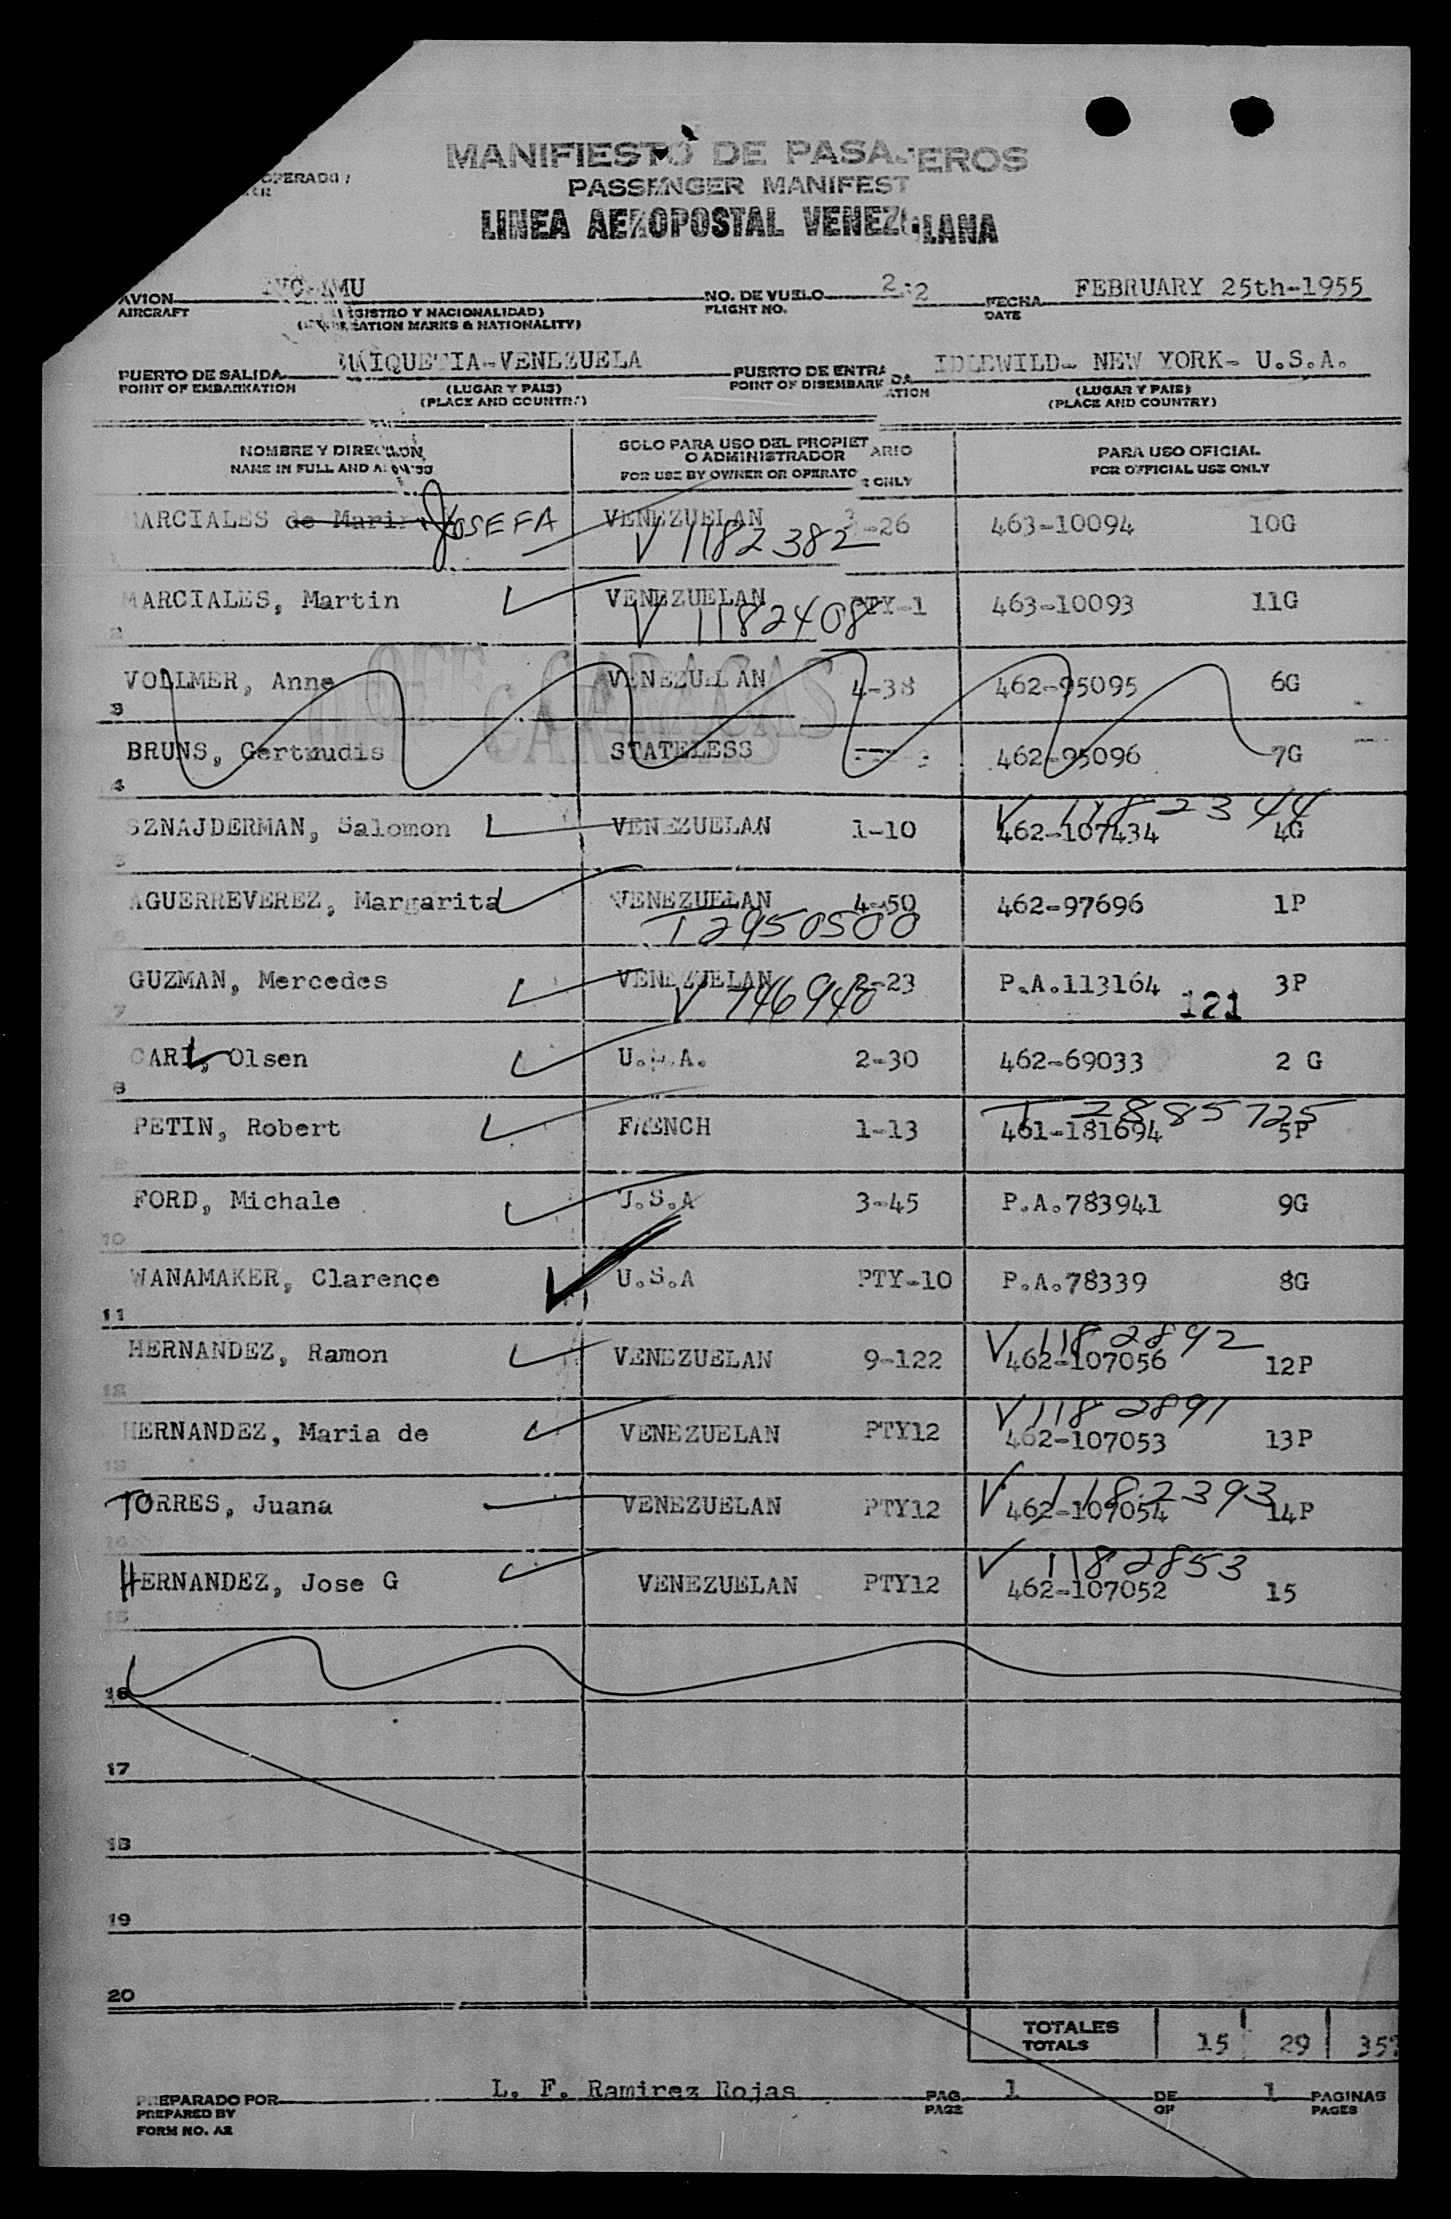 MANIFIESTO DE PASAJEROS
PASSENGER MANIFEST
LINEA AEROPOSTAL VENEZOLANA
AVION NO. DE VUELO FECHA FEBRUARY 25th-1955
AIRCRAFT FLIGHT NO. DATE
(REGISTRO Y NACIONALIDAD)
MARKS & NATIONALITY)
PUERTO DE SALIDA MAIQUETIA-VENEZUELA PUERTO DE ENTRADA IDLEWILD- NEW YORK- U.S.A.
POINT OF EMBARKATION (LUGAR Y PAIS) POINT OF DISEMBARKATION (LUGAR Y PAIS)
(PLACE AND COUNTRY) (PLACE AND COUNTRY)
NOMBRE Y DIRECCION SOLO PARA USO DEL PROPIETARIO PARA USO OFICIAL
NAME IN FULL AND ADDRESS O ADMINISTRADOR FOR OFFICIAL USE ONLY
FOR USE BY OWNER OR OPERATOR ONLY
MARCIALES de JOSEFA VENEZUELAN 463-10094 10G
V 1182382
1
MARCIALES, Martin VENEZUELAN PTY-1 463-10093 11G
V 1182408
2
OFF CARACAS
VOLLMER, Anne VENEZUELAN 4-38 462-95095 6G
3
BRUNS, Gertrudis STATELESS 462-95096 7G
4
V 1182344
SZNAJDERMAN, Salomon VENEZUELAN 1-10 462-107434 4G
5
AGUERREVEREZ, Margarita VENEZUELAN 4-50 462-97696 1P
T 2950500
6
GUZMAN, Mercedes VENEZUELAN 2-23 P.A.113164 3P
V 746940 121
7
CARL, Olsen U.S.A. 2-30 462-69033 2 G
8
T 2885725
PETIN, Robert FRENCH 1-13 461-181694 5P
9
FORD, Michale U.S.A 3-45 P.A.783941 9G
10
WANAMAKER, Clarence U.S.A PTY-10 P.A.78339 8G
11
V 1182892
HERNANDEZ, Ramon VENEZUELAN 9-122 462-107056 12P
12
V 1182891
HERNANDEZ, Maria de VENEZUELAN PTY12 462-107053 13P
13
V 1182393
TORRES, Juana VENEZUELAN PTY12 462-107054 14P
14
V 1182853
HERNANDEZ, Jose G VENEZUELAN PTY12 462-107052 15
15
16
17
18
19
20
TOTALES
TOTALS 15 29 357
PREPARADO POR L. F. Ramirez Rojas PAG. 1 DE 1 PAGINAS
PREPARED BY PAGE OF PAGES
FORM NO. A2